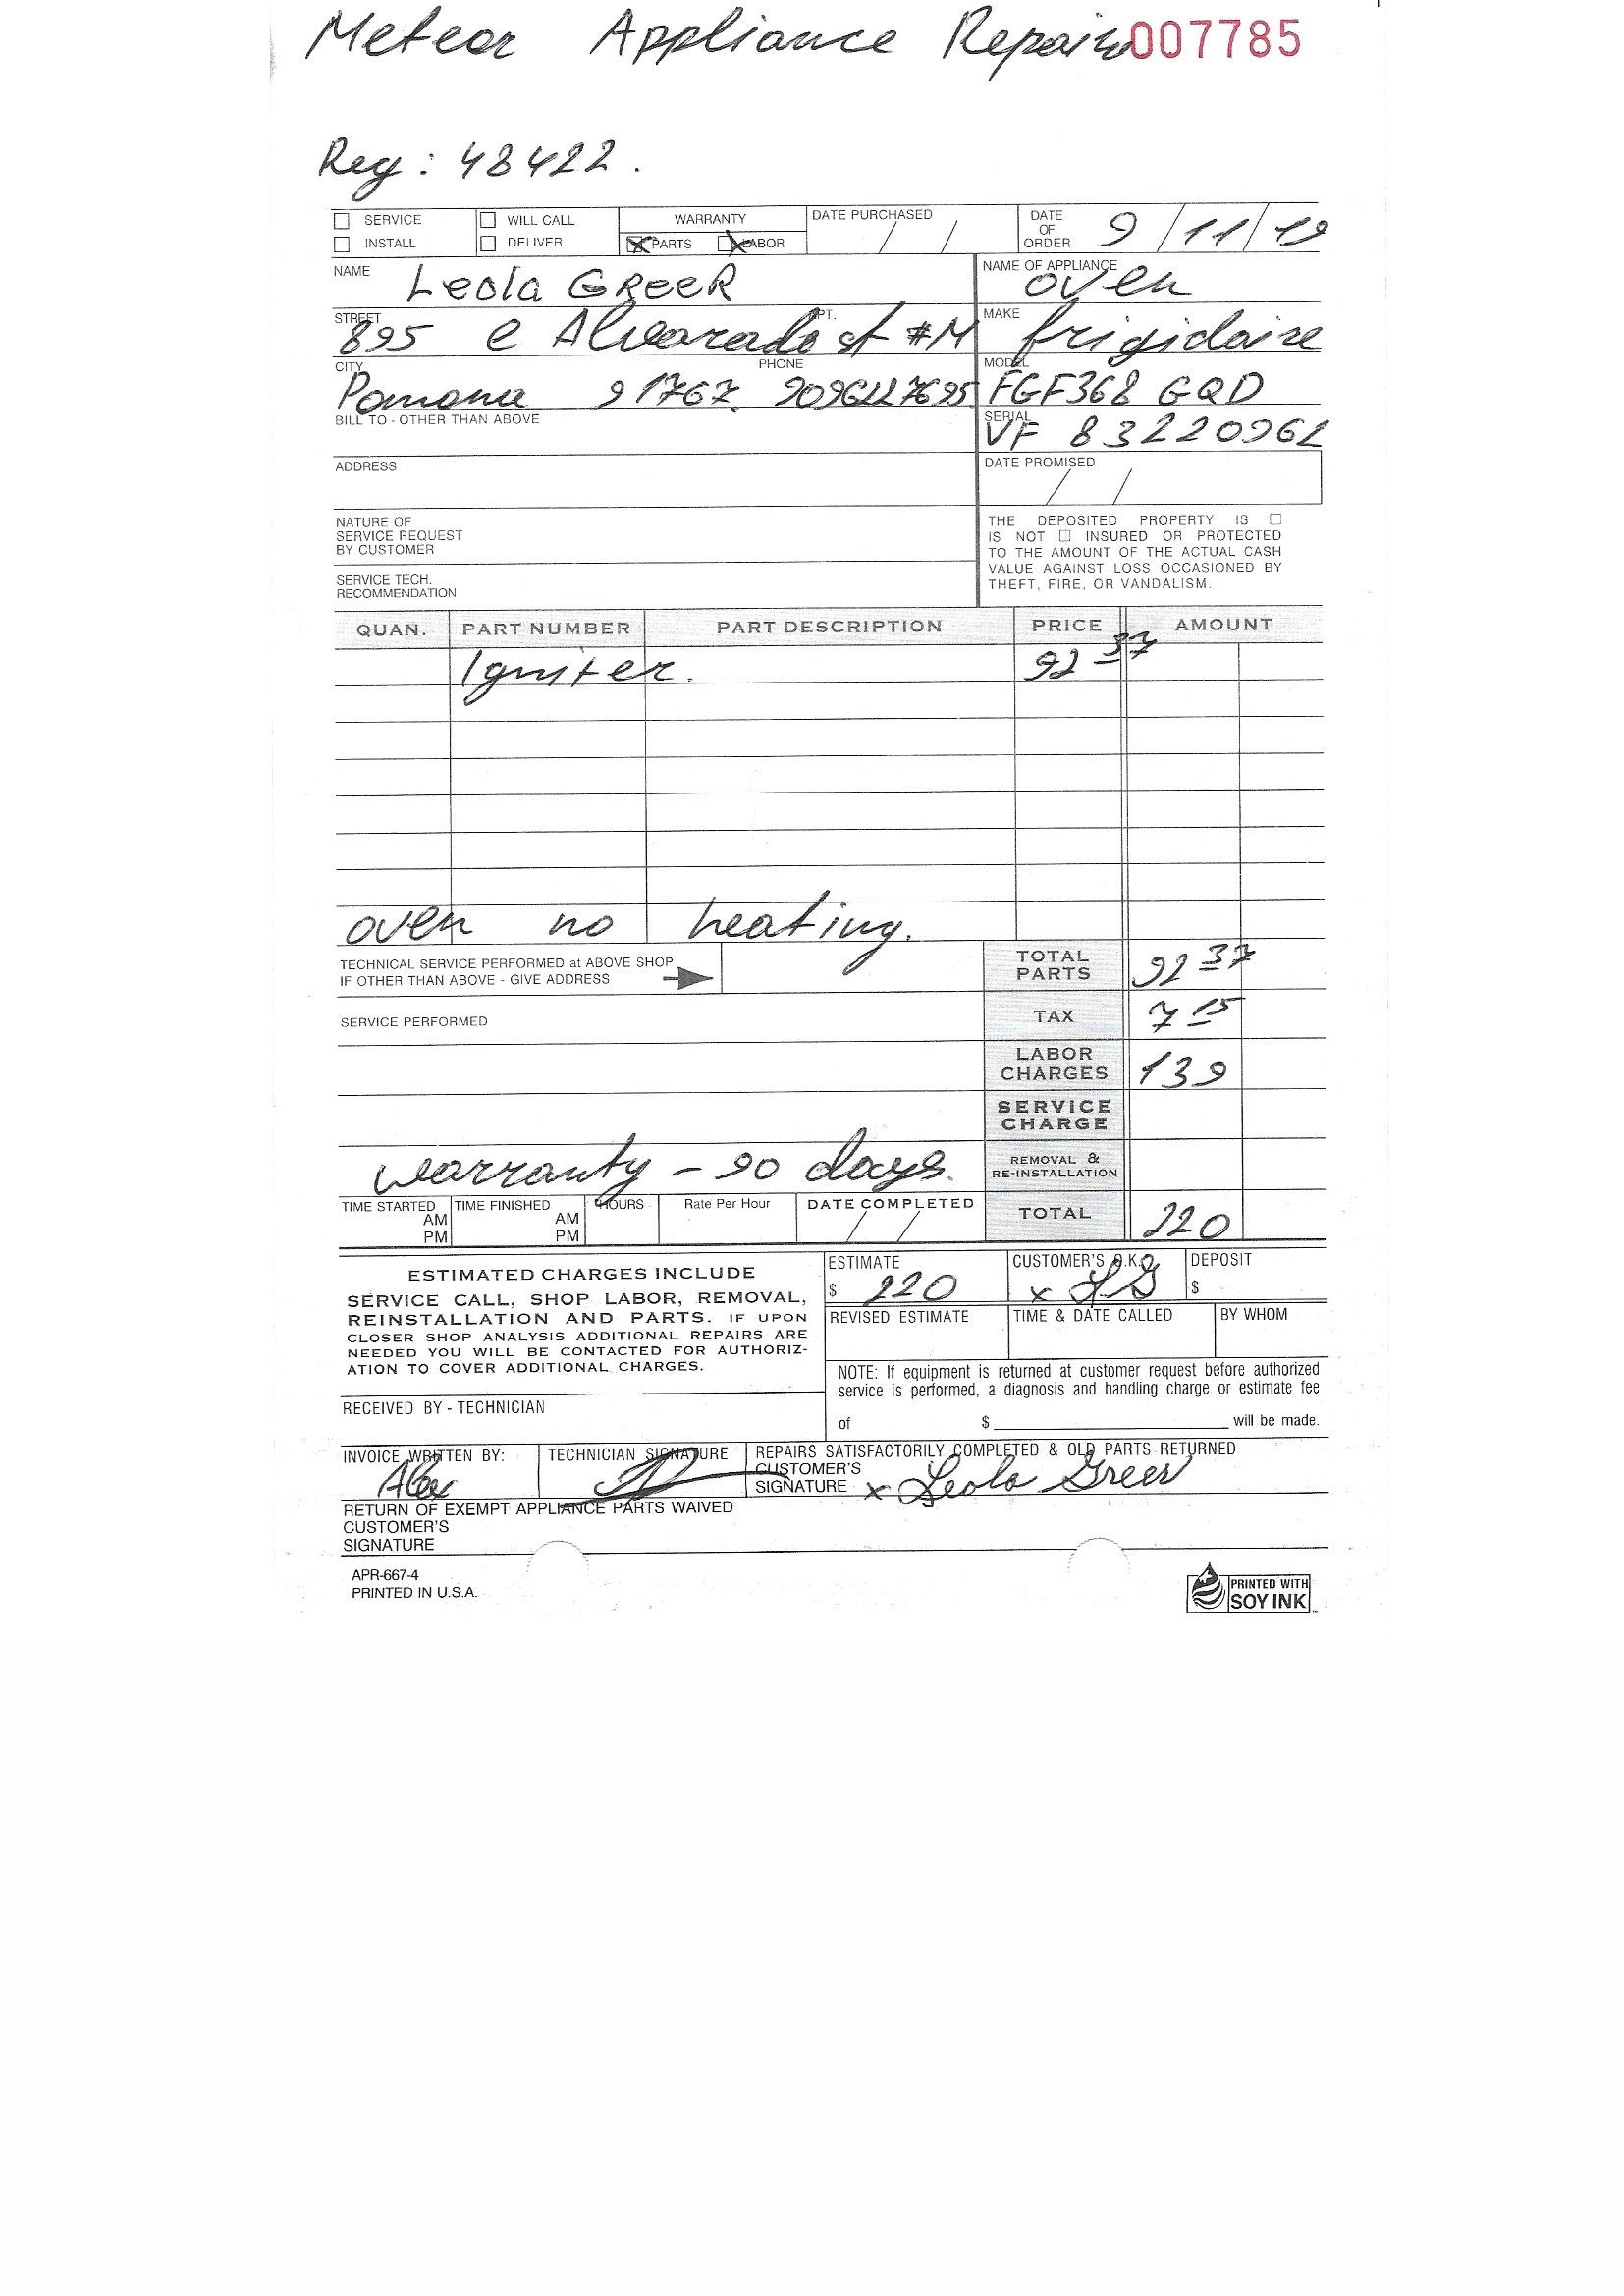 Meteor Appliance Repair 007785
Reg: 48422.
SERVICE WILL CALL WARRANTY DATE PURCHASED / / DATE OF ORDER 9/11/19
INSTALL DELIVER PARTS LABOR
NAME Leola GReeR NAME OF APPLIANCE oven
STREET 895 e Alvarado st APT. #M MAKE frigidaire
CITY Pomona 91767. PHONE 9096227695 MODEL FGF368 GQD
BILL TO - OTHER THAN ABOVE SERIAL VF 83220962
ADDRESS DATE PROMISED / /
NATURE OF
SERVICE REQUEST
BY CUSTOMER
SERVICE TECH.
RECOMMENDATION
THE DEPOSITED PROPERTY IS
IS NOT INSURED OR PROTECTED
TO THE AMOUNT OF THE ACTUAL CASH
VALUE AGAINST LOSS OCCASIONED BY
THEFT, FIRE, OR VANDALISM.
QUAN. PART NUMBER PART DESCRIPTION PRICE AMOUNT
Igniter. 92 37
oven no heating.
TECHNICAL SERVICE PERFORMED at ABOVE SHOP
IF OTHER THAN ABOVE - GIVE ADDRESS
TOTAL PARTS 92 37
SERVICE PERFORMED TAX 7 15
LABOR CHARGES 139
SERVICE CHARGE
warranty - 90 days. REMOVAL & RE-INSTALLATION
TIME STARTED AM PM TIME FINISHED AM PM HOURS Rate Per Hour DATE COMPLETED / / TOTAL 220
ESTIMATED CHARGES INCLUDE
SERVICE CALL, SHOP LABOR, REMOVAL,
REINSTALLATION AND PARTS. IF UPON
CLOSER SHOP ANALYSIS ADDITIONAL REPAIRS ARE
NEEDED YOU WILL BE CONTACTED FOR AUTHORIZ-
ATION TO COVER ADDITIONAL CHARGES.
ESTIMATE $ 220 CUSTOMER'S O.K. x LG DEPOSIT $
REVISED ESTIMATE TIME & DATE CALLED BY WHOM
NOTE: If equipment is returned at customer request before authorized
service is performed, a diagnosis and handling charge or estimate fee
of $ will be made.
RECEIVED BY - TECHNICIAN
INVOICE WRITTEN BY: Alex TECHNICIAN SIGNATURE REPAIRS SATISFACTORILY COMPLETED & OLD PARTS RETURNED
CUSTOMER'S
SIGNATURE x Leola Greer
RETURN OF EXEMPT APPLIANCE PARTS WAIVED
CUSTOMER'S
SIGNATURE
APR-667-4
PRINTED IN U.S.A.
PRINTED WITH
SOY INK